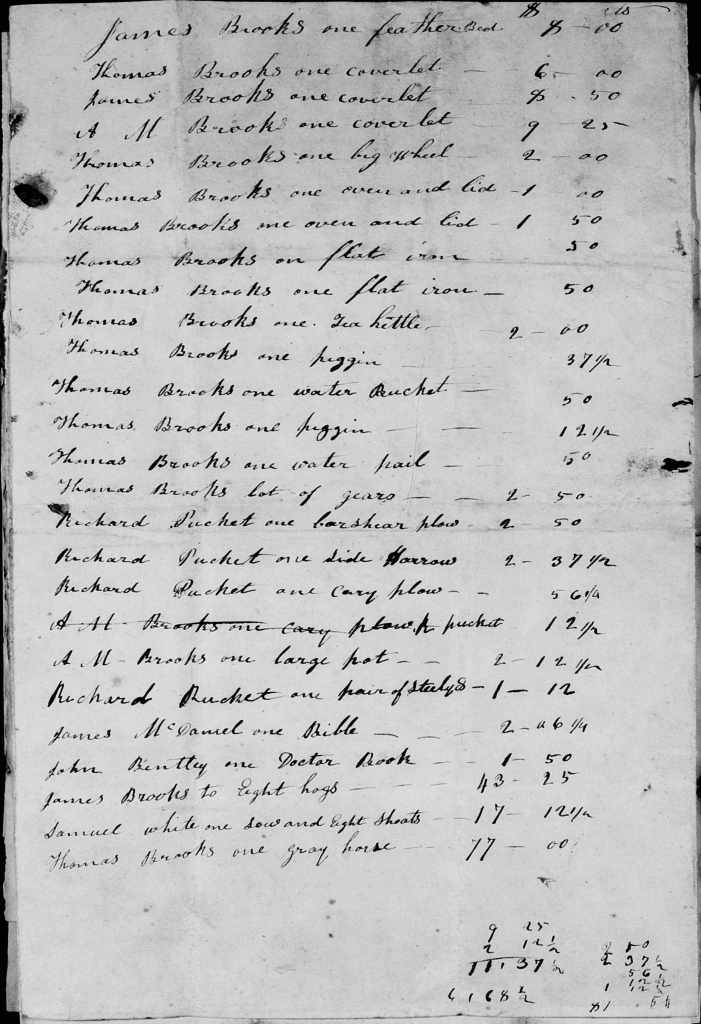 $ cts
James Brooks one feather Bed 8 - 00
Thomas Brooks one coverlet - 6 - 00
James Brooks one coverlet 8 - 50
A M Brooks one coverlet - 9 - 25
Thomas Brooks one big Wheel - 2 - 00
Thomas Brooks one oven and lid - 1 00
Thomas Brooks one oven and lid - 1 50
Thomas Brooks on flat iron 50
Thomas Brooks one flat iron - 50
Thomas Brooks one Tea kettle - - 2 - 00
Thomas Brooks one piggin - - 37 1/2
Thomas Brooks one water Bucket - 50
Thomas Brooks one piggin - - 12 1/2
Thomas Brooks one water pail - 50
Thomas Brooks lot of gears - - 2 - 50
Richard Pucket one barshear plow - 2 - 50
Richard Pucket one side Harrow 2 - 37 1/2
Richard Pucket one cary plow - - 56 1/4
A M - Brooks one cary plow R pucket 12 1/2
A M - Brooks one large pot - - 2 - 12 1/2
Richard Pucket one pair of Steelyds - 1 - 12
James McDaniel one Bible - - - 2 - 06 1/4
John Bentley one Doctor Book - - 1 - 50
James Brooks to Eight hogs - - - 43 - 25
Samuel White one sow and Eight Shoats - - 17 - 12 1/2
Thomas Brooks one gray horse - - 77 - 00
9 25
2 12 1/2
11,37 1/2
6,68 1/2
2 50
2 37 1/2
56 1/4
12 1/2
1 12